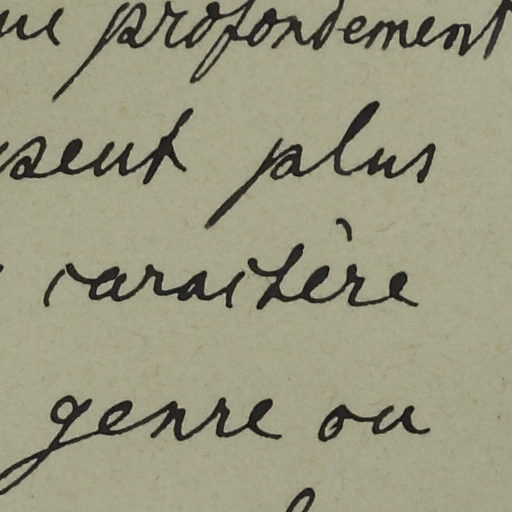 profondement
plus
caractère
genre ou